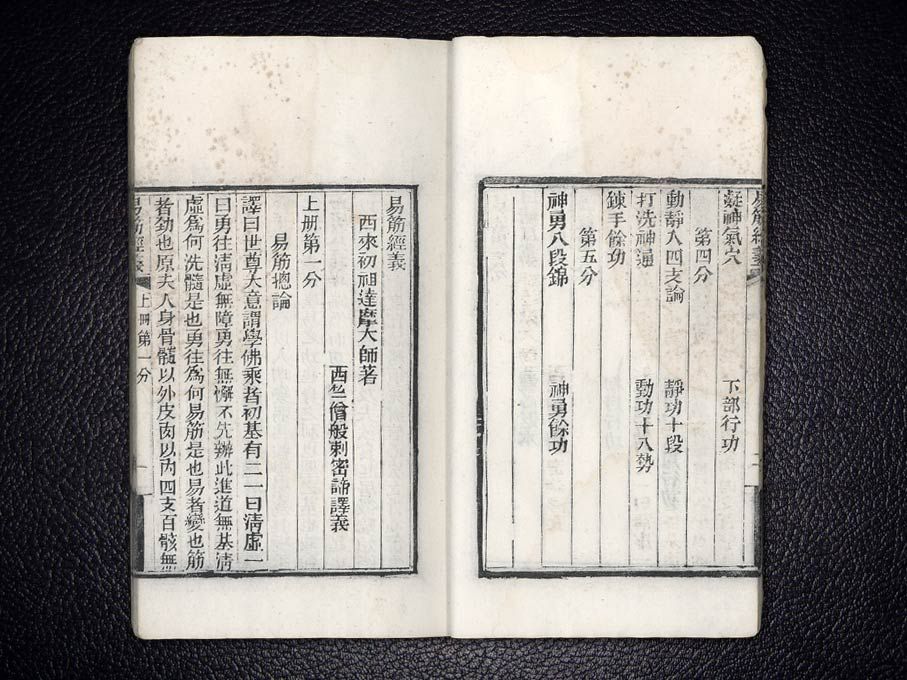 易筋經義
凝神氣穴　下部行功
第四分
動靜入四支論　靜功十段
打洗神通　動功十八勢
鍊手餘功
第五分
神勇八段錦　神勇餘功
易筋經義
西來初祖達摩大師著
西竺僧般剌密諦譯義
上册第一分
易筋總論
譯曰世尊大意謂學佛乘者初基有二一曰淸虛一
曰勇往淸虛無障勇往無懈不先辦此進道無基淸
虛爲何洗髓是也勇往爲何易筋是也易者變也筋
者勁也原夫人身骨髓以外皮肉以內四支百骸無
易筋經義　上冊第一分